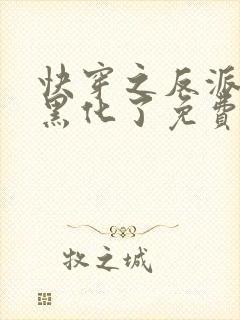 快穿之反派
黑化了免費
牧之城